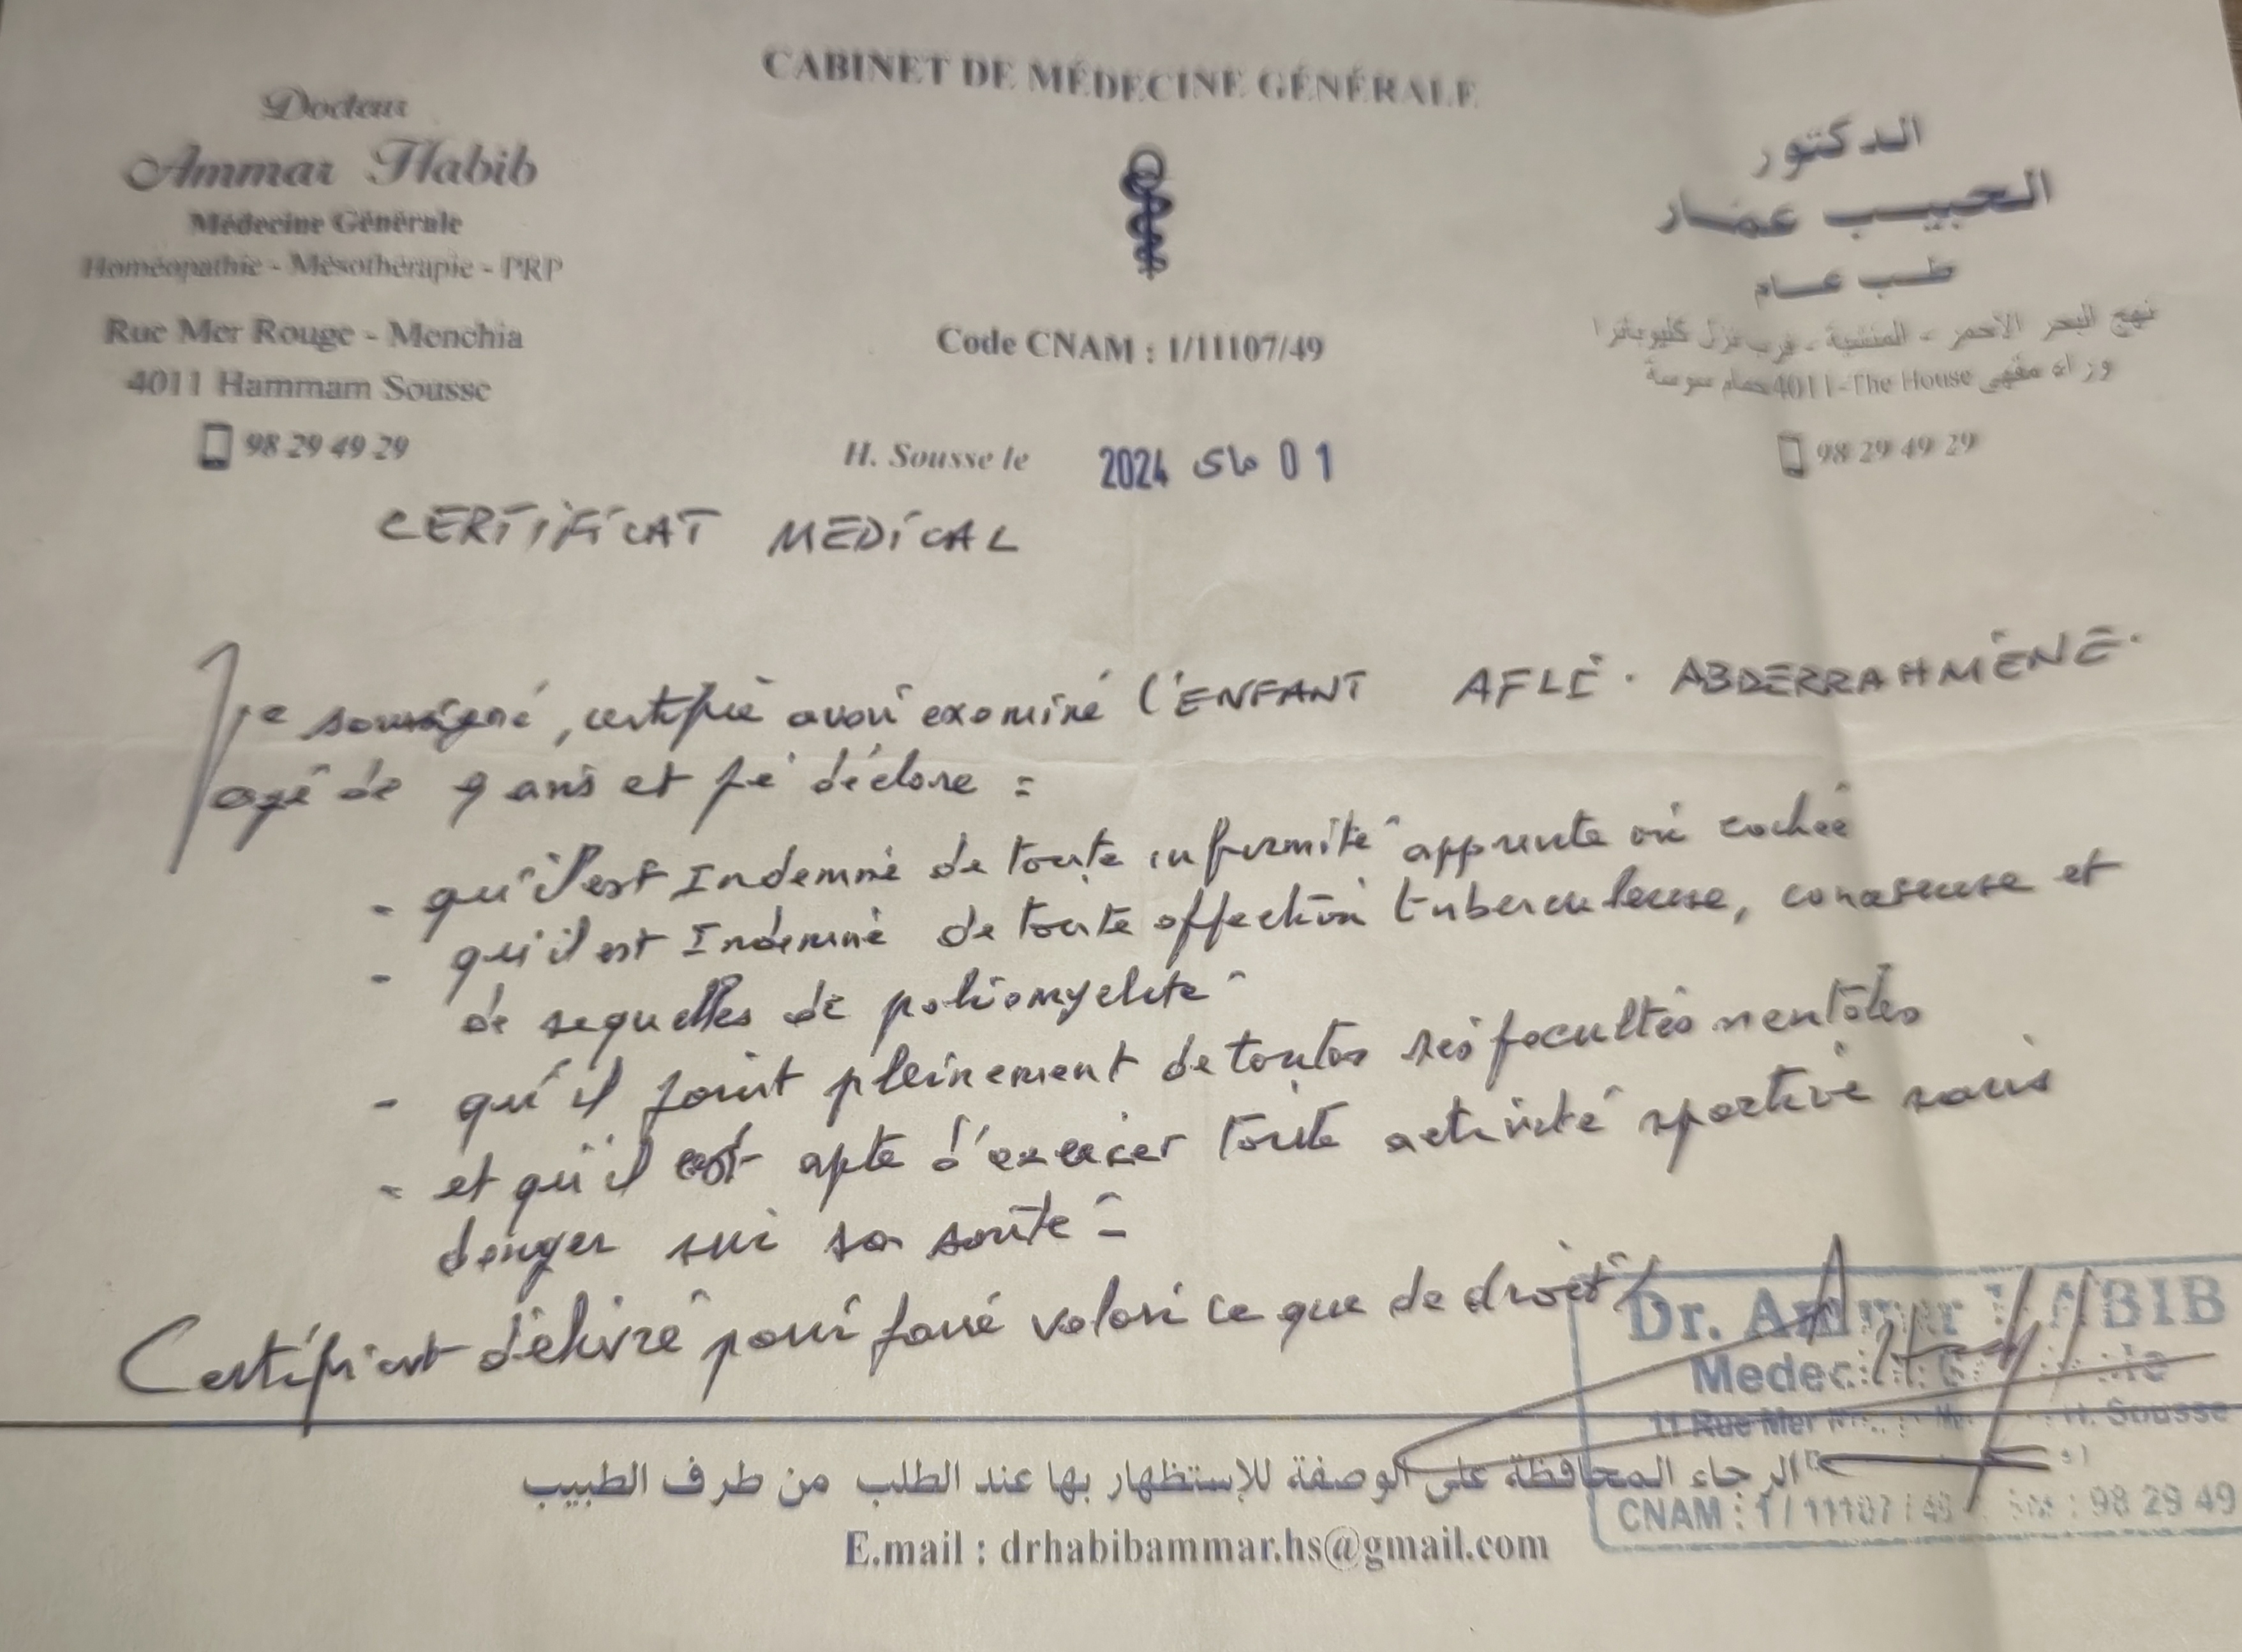 CABINET DE MÉDECINE GÉNÉRALE
Docteur
Ammar Habib
Médecine Générale
Homéopathie - Mésothérapie - PRP
Rue Mer Rouge - Menchia
4011 Hammam Sousse
98 29 49 29
الدكتور
الحبيب عمار
طب عام
نهج البحر الأحمر - المنشية - قرب نزل كليوباترا
وراء مقهى The House-4011 حمام سوسة
98 29 49 29
Code CNAM : 1/11107/49
H. Sousse le 2024 ماي 01
CERTIFICAT MEDICAL
Je soussigné, certifie avoir examiné l'ENFANT AFLI. ABDERRAHMENE.
agé de 9 ans et je déclare :
- qu'il est Indemne de toute infirmité apprente ou cachée
- qu'il est Indemne de toute affection tuberculeuse, et
de sequelles de poliomyelite
- qu'il jouit pleinement de toutes ses facultés mentales
- et qu'il est apte d'exercer toute activité sportive sans
danger sur sa santé -
Certificat délivré pour faire valoir ce que de droit
Dr. Ammar HABIB
Medecine Générale
11 Rue Mer H. Sousse
الرجاء المحافظة على الوصفة للإستظهار بها عند الطلب من طرف الطبيب
CNAM : 1 / 11107 / 49 : 98 29 49
E.mail : drhabibammar.hs@gmail.com